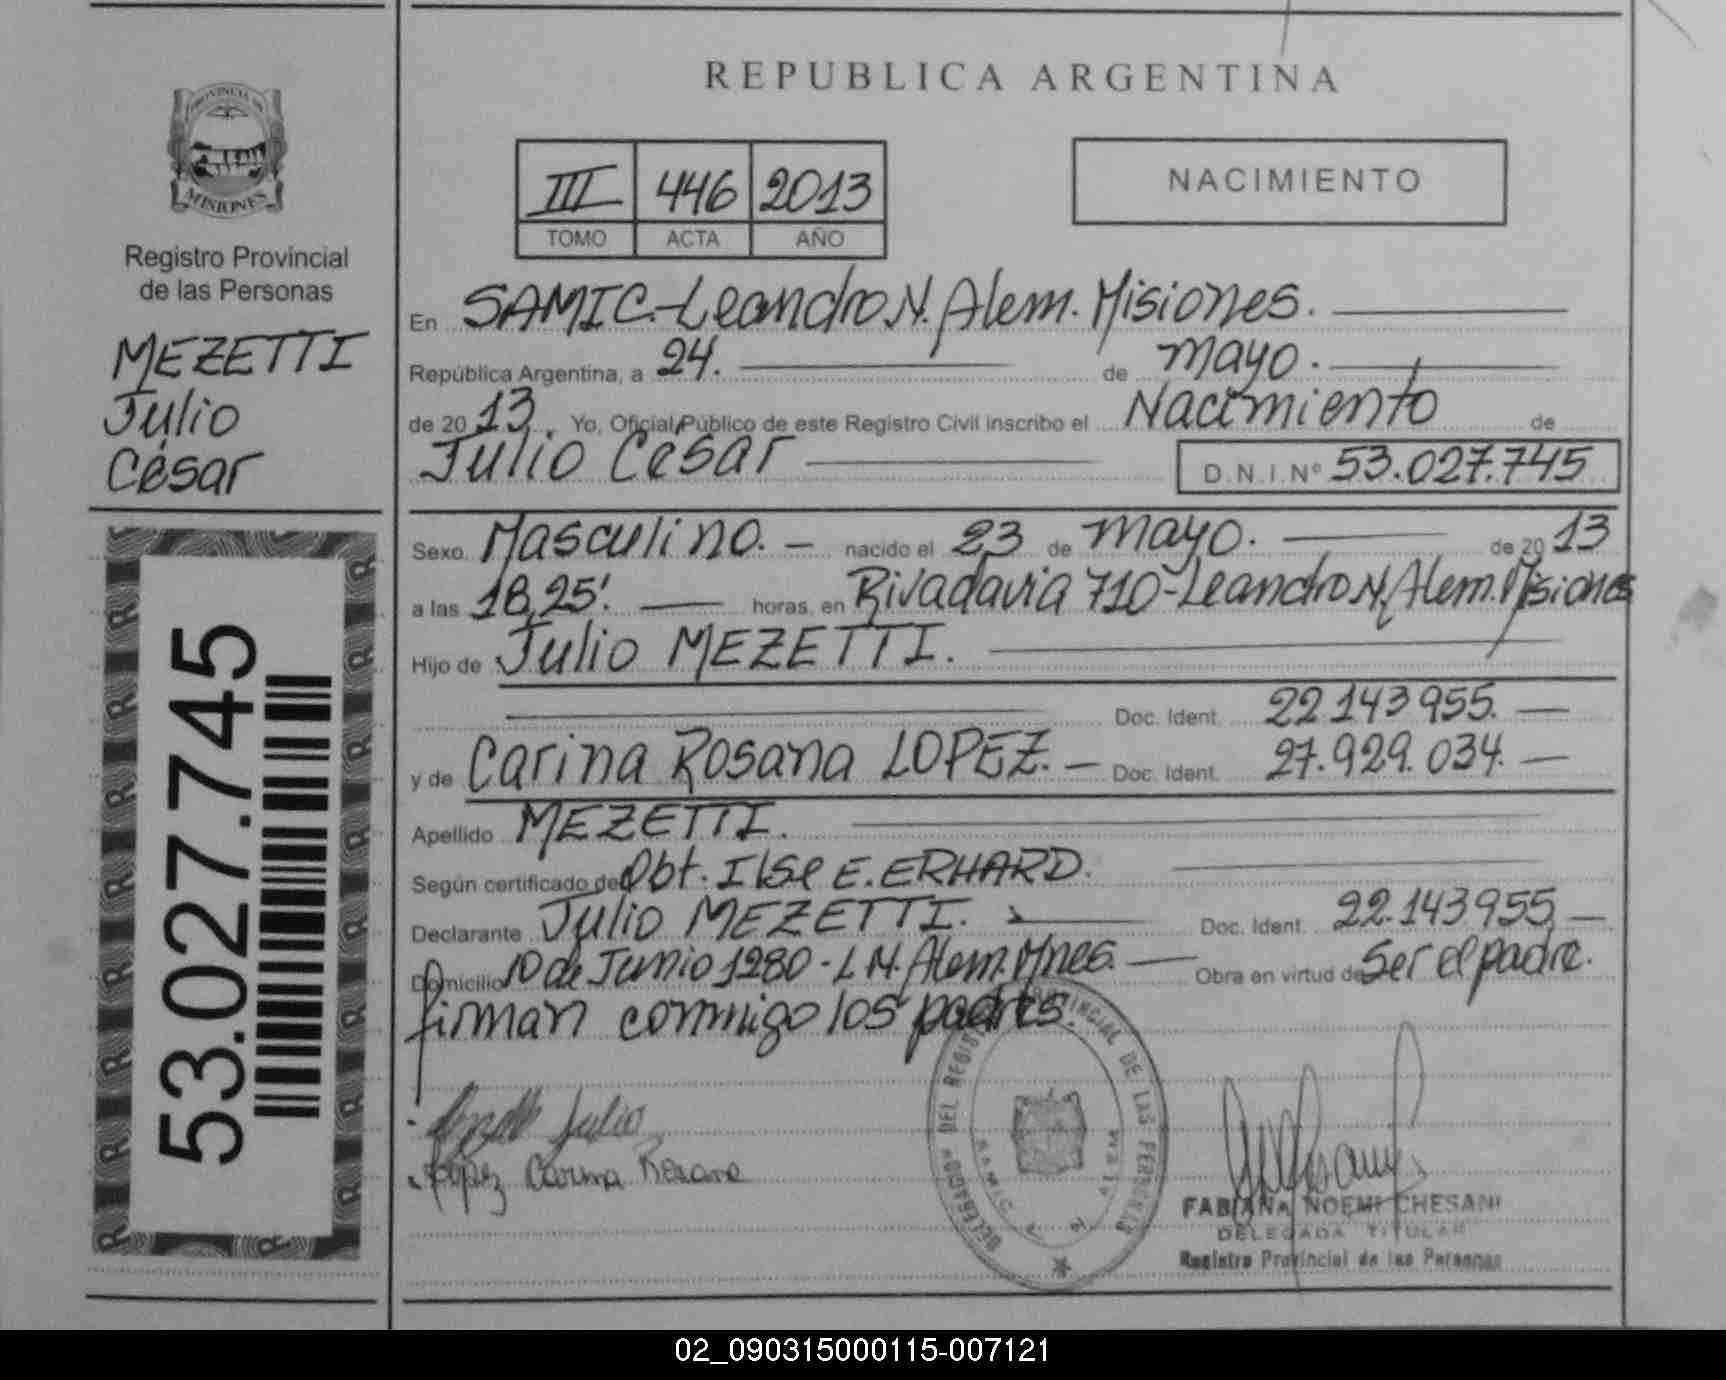 REPUBLICA ARGENTINA
PROVINCIA DE
MISIONES
Registro Provincial
de las Personas
MEZETTI
Julio
César
53.027.745
III 446 2013
TOMO ACTA AÑO
NACIMIENTO
En SAMIC-Leandro N. Alem. Misiones.
República Argentina, a 24. de mayo.
de 2013. Yo, Oficial Público de este Registro Civil inscribo el Nacimiento de
Julio César D.N.I.Nº 53.027.745
Sexo Masculino.- nacido el 23 de mayo. de 2013
a las 18,25'. horas, en Rivadavia 710-Leandro N. Alem. Misiones
Hijo de Julio MEZETTI.
Doc. Ident. 22.143.955.
y de Carina Rosana LOPEZ.- Doc. Ident. 27.929.034.
Apellido MEZETTI.
Según certificado de Obt. Ilse E. ERHARD.
Declarante Julio MEZETTI. Doc. Ident. 22.143.955
Domicilio 10 de Junio 1280-L.N. Alem. Mnes. Obra en virtud de Ser el padre.
firman conmigo los padres.
Julio
Lopez Carina Rosana
DEL REGISTRO PROVINCIAL DE LAS PERSONAS
SAMIC
FABIANA NOEMI CHESANI
DELEGADA TITULAR
Registro Provincial de las Personas
02_090315000115-007121